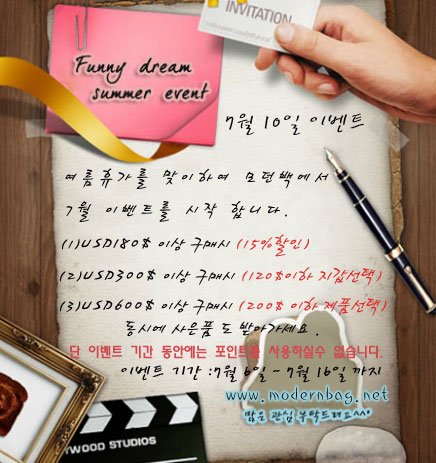 INVITATION
Funny dream
summer event
7월 10일 이벤트
여름휴가를 맞이하여 모던백에서
7월 이벤트를 시작 합니다.
(1)USD180$ 이상 구매시 (15%할인)
(2)USD300$ 이상 구매시 (120$이하 지갑선택)
(3)USD600$ 이상 구매시 (200$ 이하 제품선택)
동시에 사은품 도 받아가세요.
단 이벤트 기간 동안에는 포인트를 사용하실수 없습니다.
이벤트 기간 :7월 6일 ~ 7월 16일 까지
www.modernbag.net
많은 관심 부탁드려요^^*
YWOOD STUDIOS